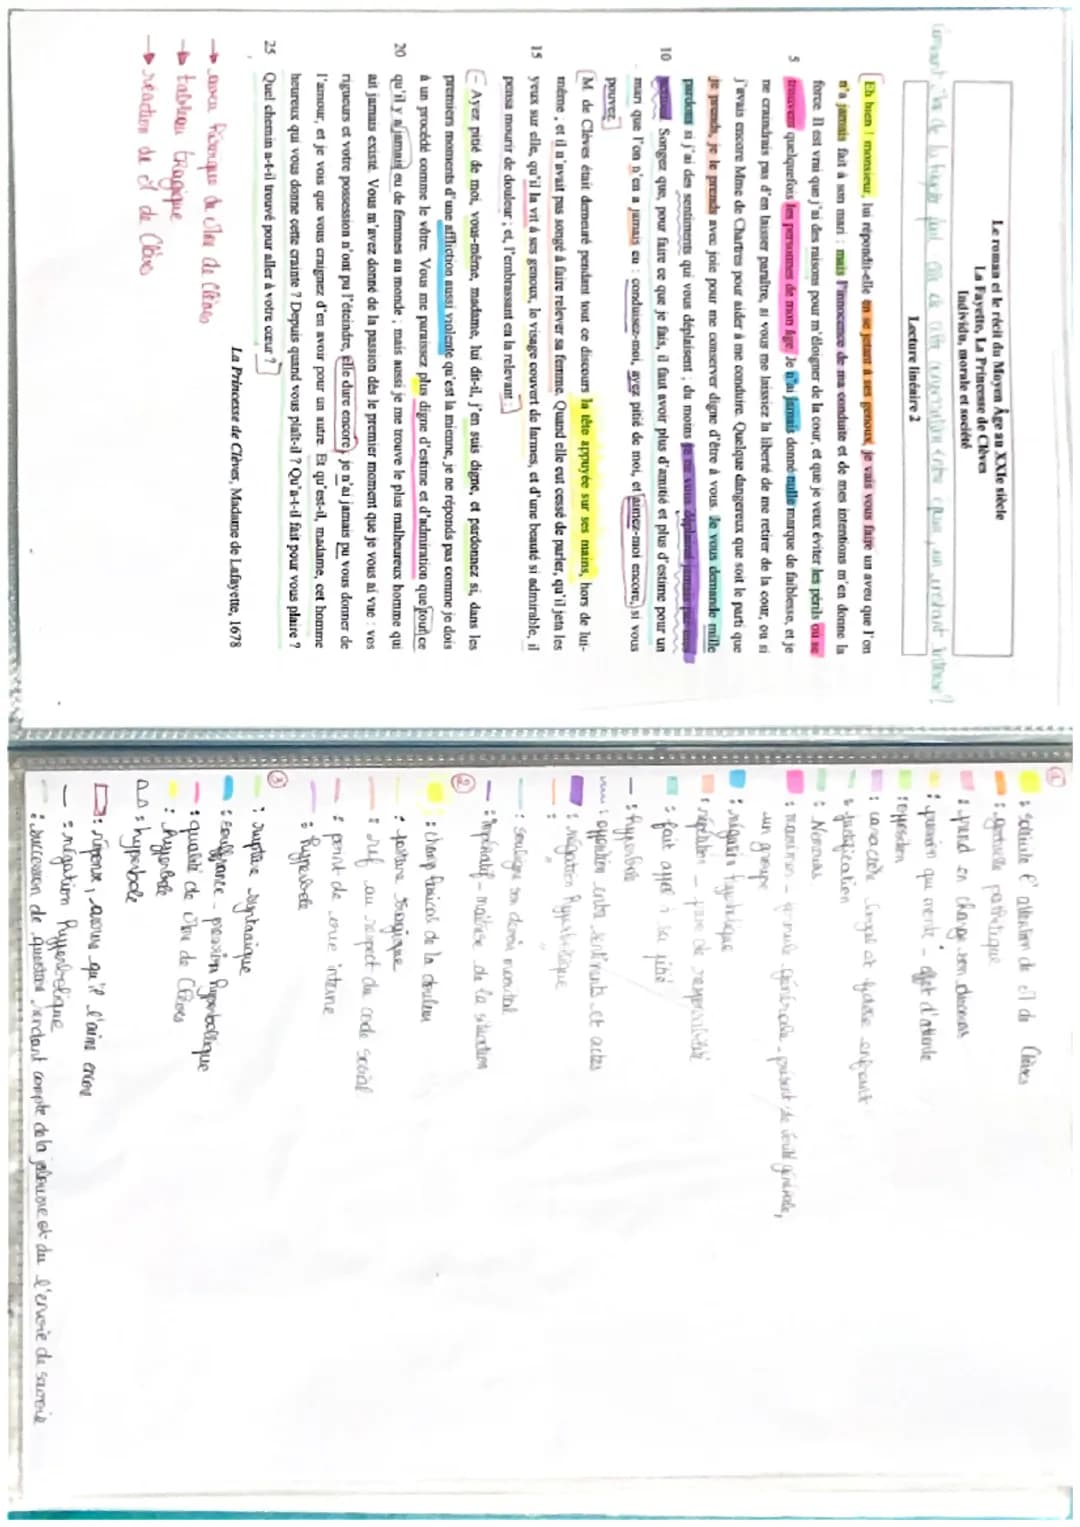 Le roman et le récit du Moyen Âge au XXIe siècle
La Fayette, La Princesse de Clèves
Individu, morale et société
Lecture linéaire 2
Eh bien ! monsieur, lui répondit-elle en se jetant à ses genoux, je vais vous faire un aveu que l'on
n'a jamais fait à son mari ; mais l'innocence de ma conduite et de mes intentions m'en donne la
force. Il est vrai que j'ai des raisons pour m'éloigner de la cour, et que je veux éviter les périls où se
5 trouvent quelquefois les personnes de mon âge. Je n'ai jamais donné nulle marque de faiblesse, et je
ne craindrais pas d'en laisser paraître, si vous me laissiez la liberté de me retirer de la cour, ou si
j'avais encore Mme de Chartres pour aider à me conduire. Quelque dangereux que soit le parti que
je prends, je le prends avec joie pour me conserver digne d'être à vous. Je vous demande mille
pardons, si j'ai des sentiments qui vous déplaisent ; du moins je ne vous déplairai jamais par mes
10 actions. Songez que, pour faire ce que je fais, il faut avoir plus d'amitié et plus d'estime pour un
mari que l'on n'en a jamais eu : conduisez-moi, ayez pitié de moi, et aimez-moi encore, si vous
pouvez.
M. de Clèves était demeuré pendant tout ce discours la tête appuyée sur ses mains, hors de lui-
même ; et il n'avait pas songé à faire relever sa femme. Quand elle eut cessé de parler, qu'il jeta les
15 yeux sur elle, qu'il la vit à ses genoux, le visage couvert de larmes, et d'une beauté si admirable, il
pensa mourir de douleur ; et, l'embrassant en la relevant :
- Ayez pitié de moi, vous-même, madame, lui dit-il, j'en suis digne, et pardonnez si, dans les
premiers moments d'une affliction aussi violente qu'est la mienne, je ne réponds pas comme je dois
à un procédé comme le vôtre. Vous me paraissez plus digne d'estime et d'admiration que tout ce
20 qu'il y a jamais eu de femmes au monde ; mais aussi je me trouve le plus malheureux homme qui
ait jamais existé. Vous m'avez donné de la passion dès le premier moment que je vous ai vue : vos
rigueurs et votre possession n'ont pu l'éteindre, elle dure encore ; je n'ai jamais pu vous donner de
l'amour, et je vois que vous craignez d'en avoir pour un autre. Et qu'est-il, madame, cet homme
heureux qui vous donne cette crainte ? Depuis quand vous plaît-il ? Qu'a-t-il fait pour vous plaire ?
25 Quel chemin a-t-il trouvé pour aller à votre cœur ?
La Princesse de Clèves, Madame de Lafayette, 1678
→ aveu héroïque de Mme de Clèves
→ tableau tragique
→ réaction de M de Clèves
①
: sollicite l'attention de M de Clèves
: gestuelle pathétique
: effet d'attente
: opposition
: justification
: Nominas
générale - présent de vérité générale,
un groupe
: négation hyperbolique
: fait appel à sa pitié
: hyperbole
: opposition entre sentiments et actes
: négation hyperbolique
: souligne son dévoue
: impératif - maîtrise de la situation
②
: champ lexical de la douleur
: posture tragique
au respect du code social
: point de vue interne
: hyperbole
③
: rupture syntaxique
: souffrance - passion hyperbolique
: qualité de Mme de Clèves
: hyperbole
: hyperbole
: réponse, avoue qu'il l'aime encore
: négation hyperbolique
: succession de questions rendant compte de la jalousie et du l'envie de savoir